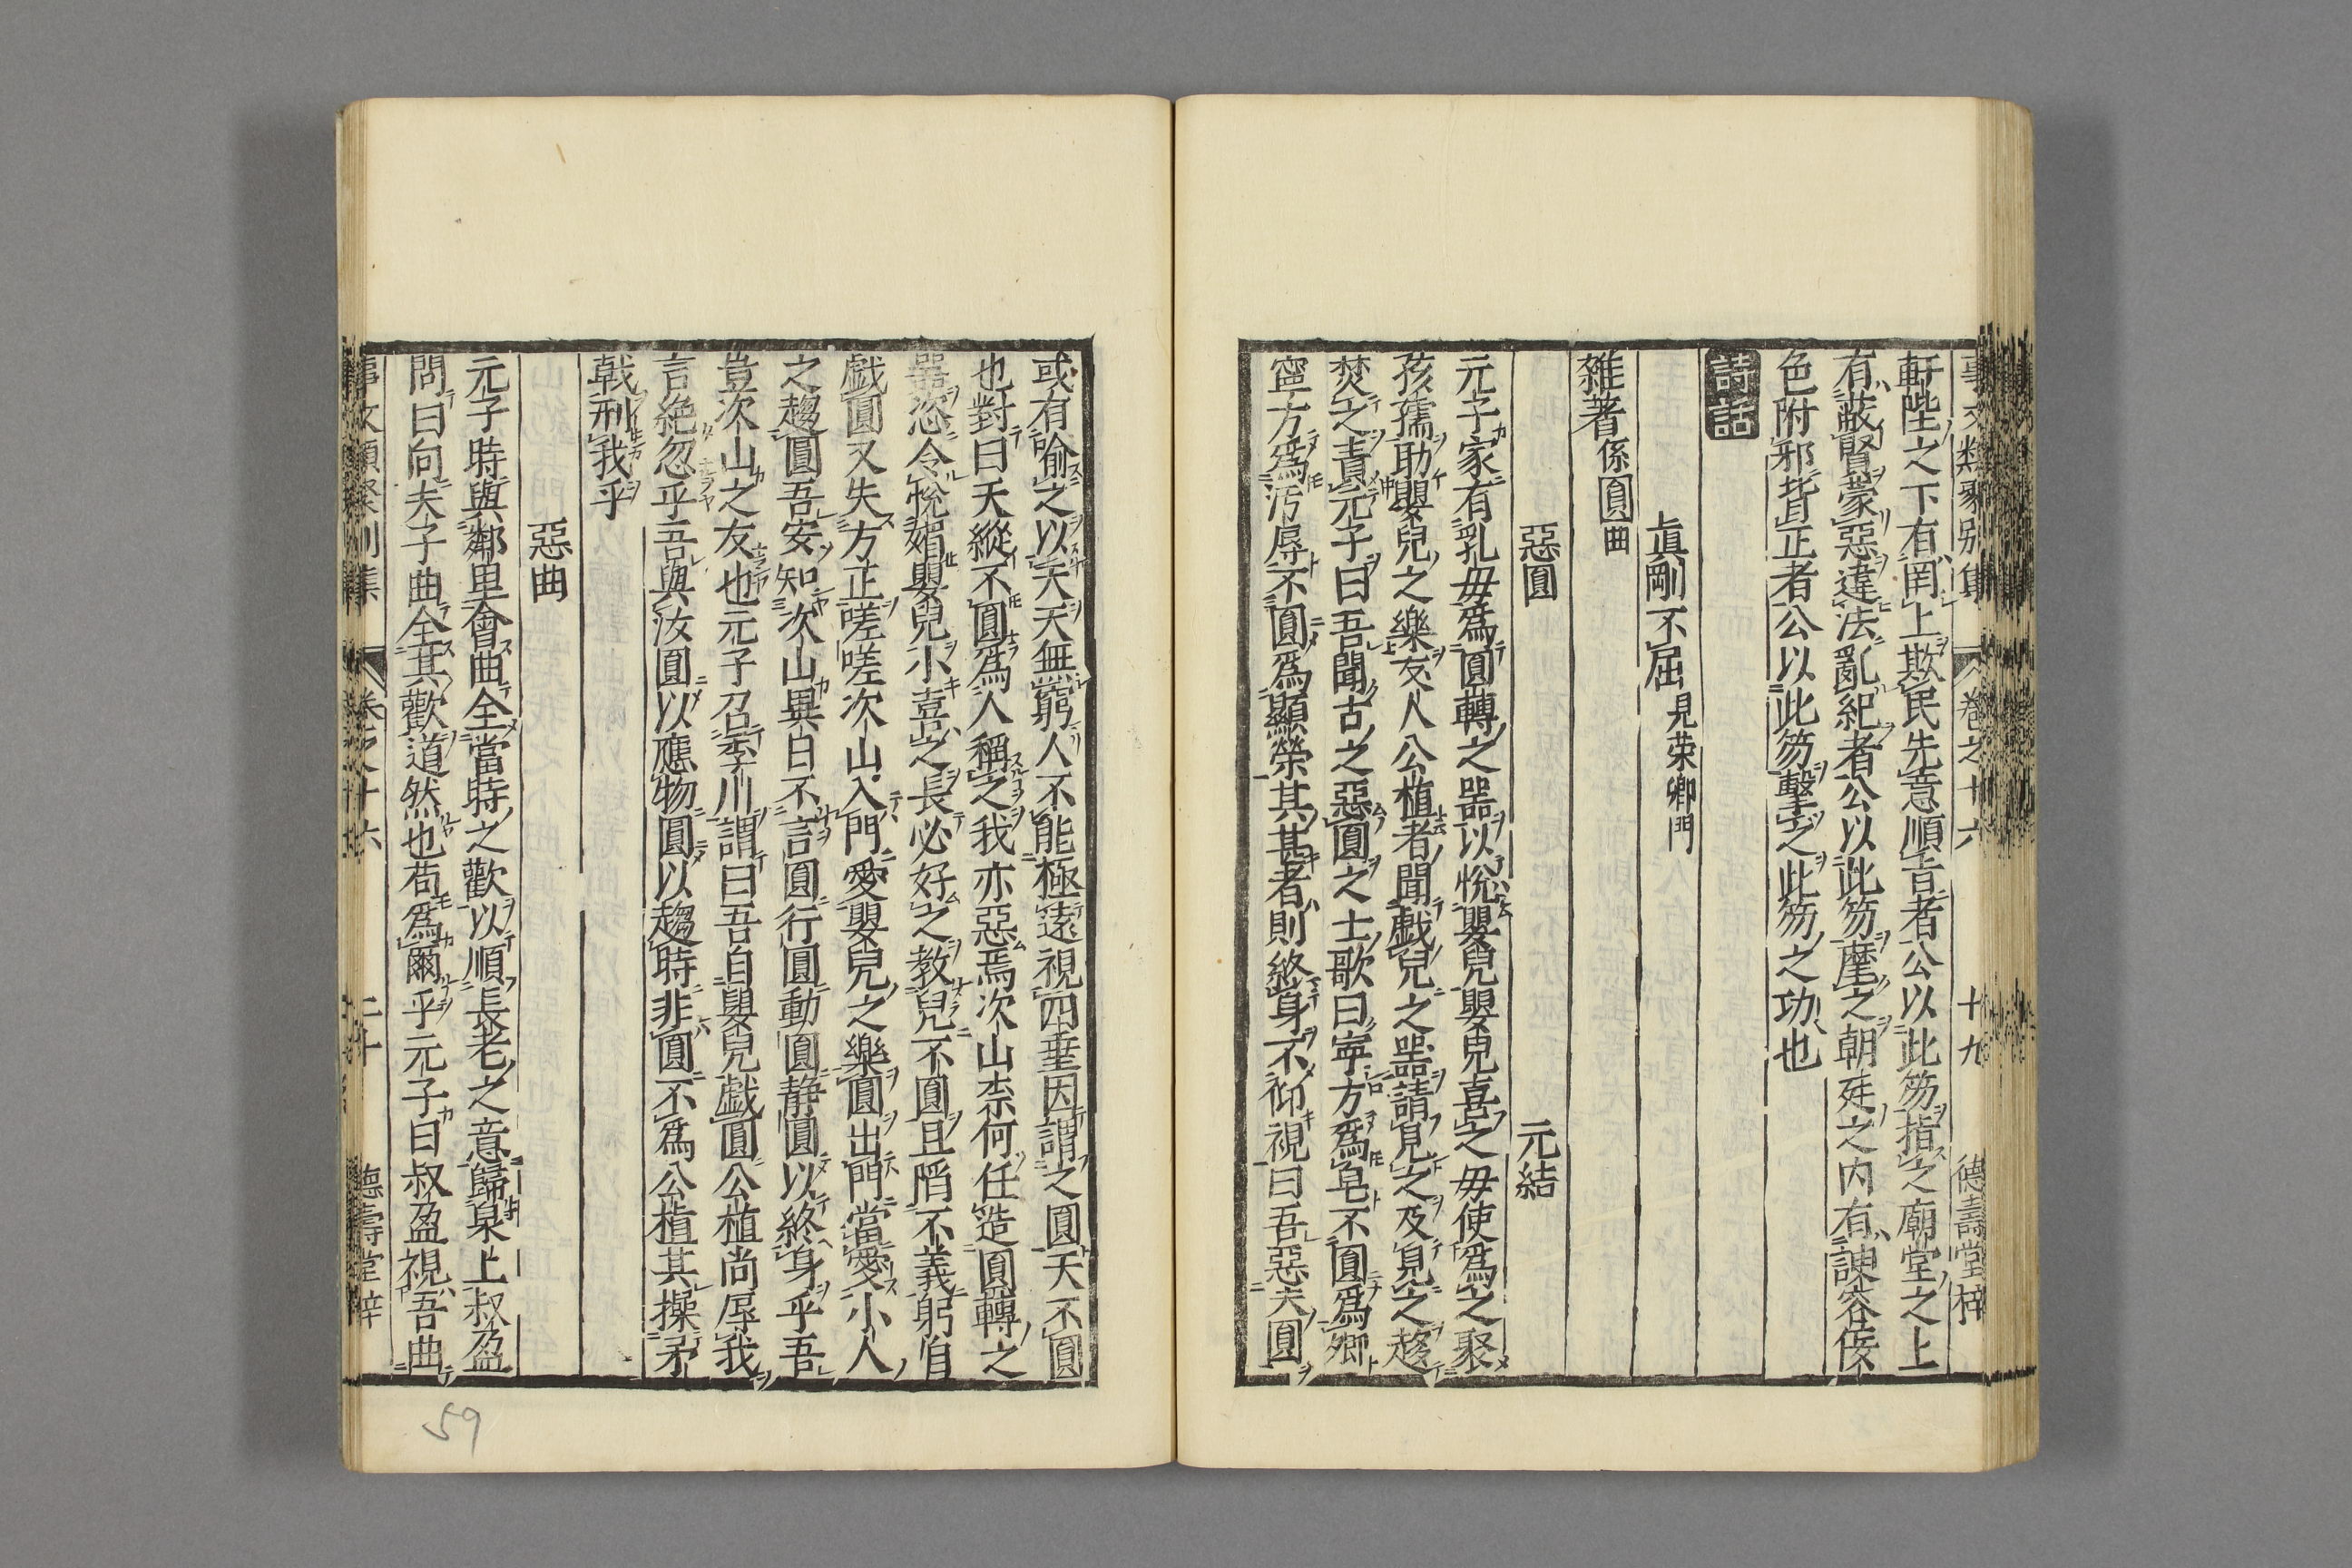 事文類聚別集 卷之十六 十九 德壽堂梓
軒陛之下有罔上欺民先意順旨者公以此笏指之廟堂之上
有蔽賢蒙惡違法亂紀者公以此笏麾之朝廷之內有諛容佞
色附邪背正者公以此笏擊之此笏之功也
詩話
眞剛不屈見荣卿門
雜著係圓曲
惡圓 元結
元子家有乳毋爲圓轉之器以悅嬰兒嬰兒喜之毋使爲之聚
孩孺助嬰兒之樂友人公植者聞戲兒之器請見之及見之趍
焚之責元子曰吾聞古之惡圓之士歌曰寧方爲皂不圓爲卿
寧方爲汚辱不圓爲顯榮其甚者則終身不仰視曰吾惡夫圓
或有喻之以天天無窮人不能極遠視四垂因謂之圓天不圓
也對曰天縱不圓爲人稱之我亦惡焉次山柰何任造圓轉之
器恣令悅媚嬰兒小喜之長必好之教兒不圓且陷不義躬自
戲圓又失方正嗟嗟次山入門愛嬰兒之樂圓出門當愛小人
之趨圓吾安知次山異日不言圓行圓動圓静圓以終身乎吾
豈次山之友也元子召季川謂曰吾自嬰兒戲圓公植尚辱我
言絶忽乎吾與汝圓以應物圓以趨時非圓不爲公植其操矛
戟刑我乎
惡曲
元子時與鄰里會曲全當時之歡以順長老之意歸泉上叔盈
問曰向夫子曲全其歡道然也苟爲爾乎元子曰叔盈視吾曲
二十 德壽堂梓
59